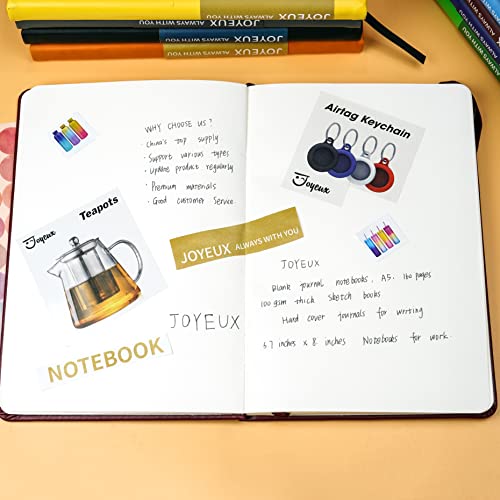 JOYEUX ALWAYS WITH YOU
JOYEUX ALWAYS WITH YOU
JOYEUX ALWAYS WITH YOU
WHY CHOOSE US?
· China's top supply
· Support various types
· Update product regularly
· Premium materials
· Good customer service.
Teapots
Joyeux
JOYEUX ALWAYS WITH YOU
JOYEUX
NOTEBOOK
Airtag Keychain
Joyeux
JOYEUX
Blank journal notebooks, A5, 160 pages
100 gsm thick sketch books
Hand cover journals for writing
5.7 inches x 8. inches Notebooks for work.